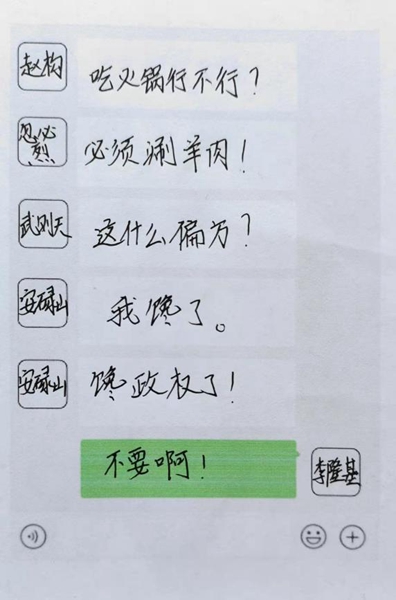 赵构
吃火锅行不行？
忽必烈
必须涮羊肉！
武则天
这什么偏方？
安碌山
我馋了。
安碌山
馋政权了！
不要啊！
李隆基